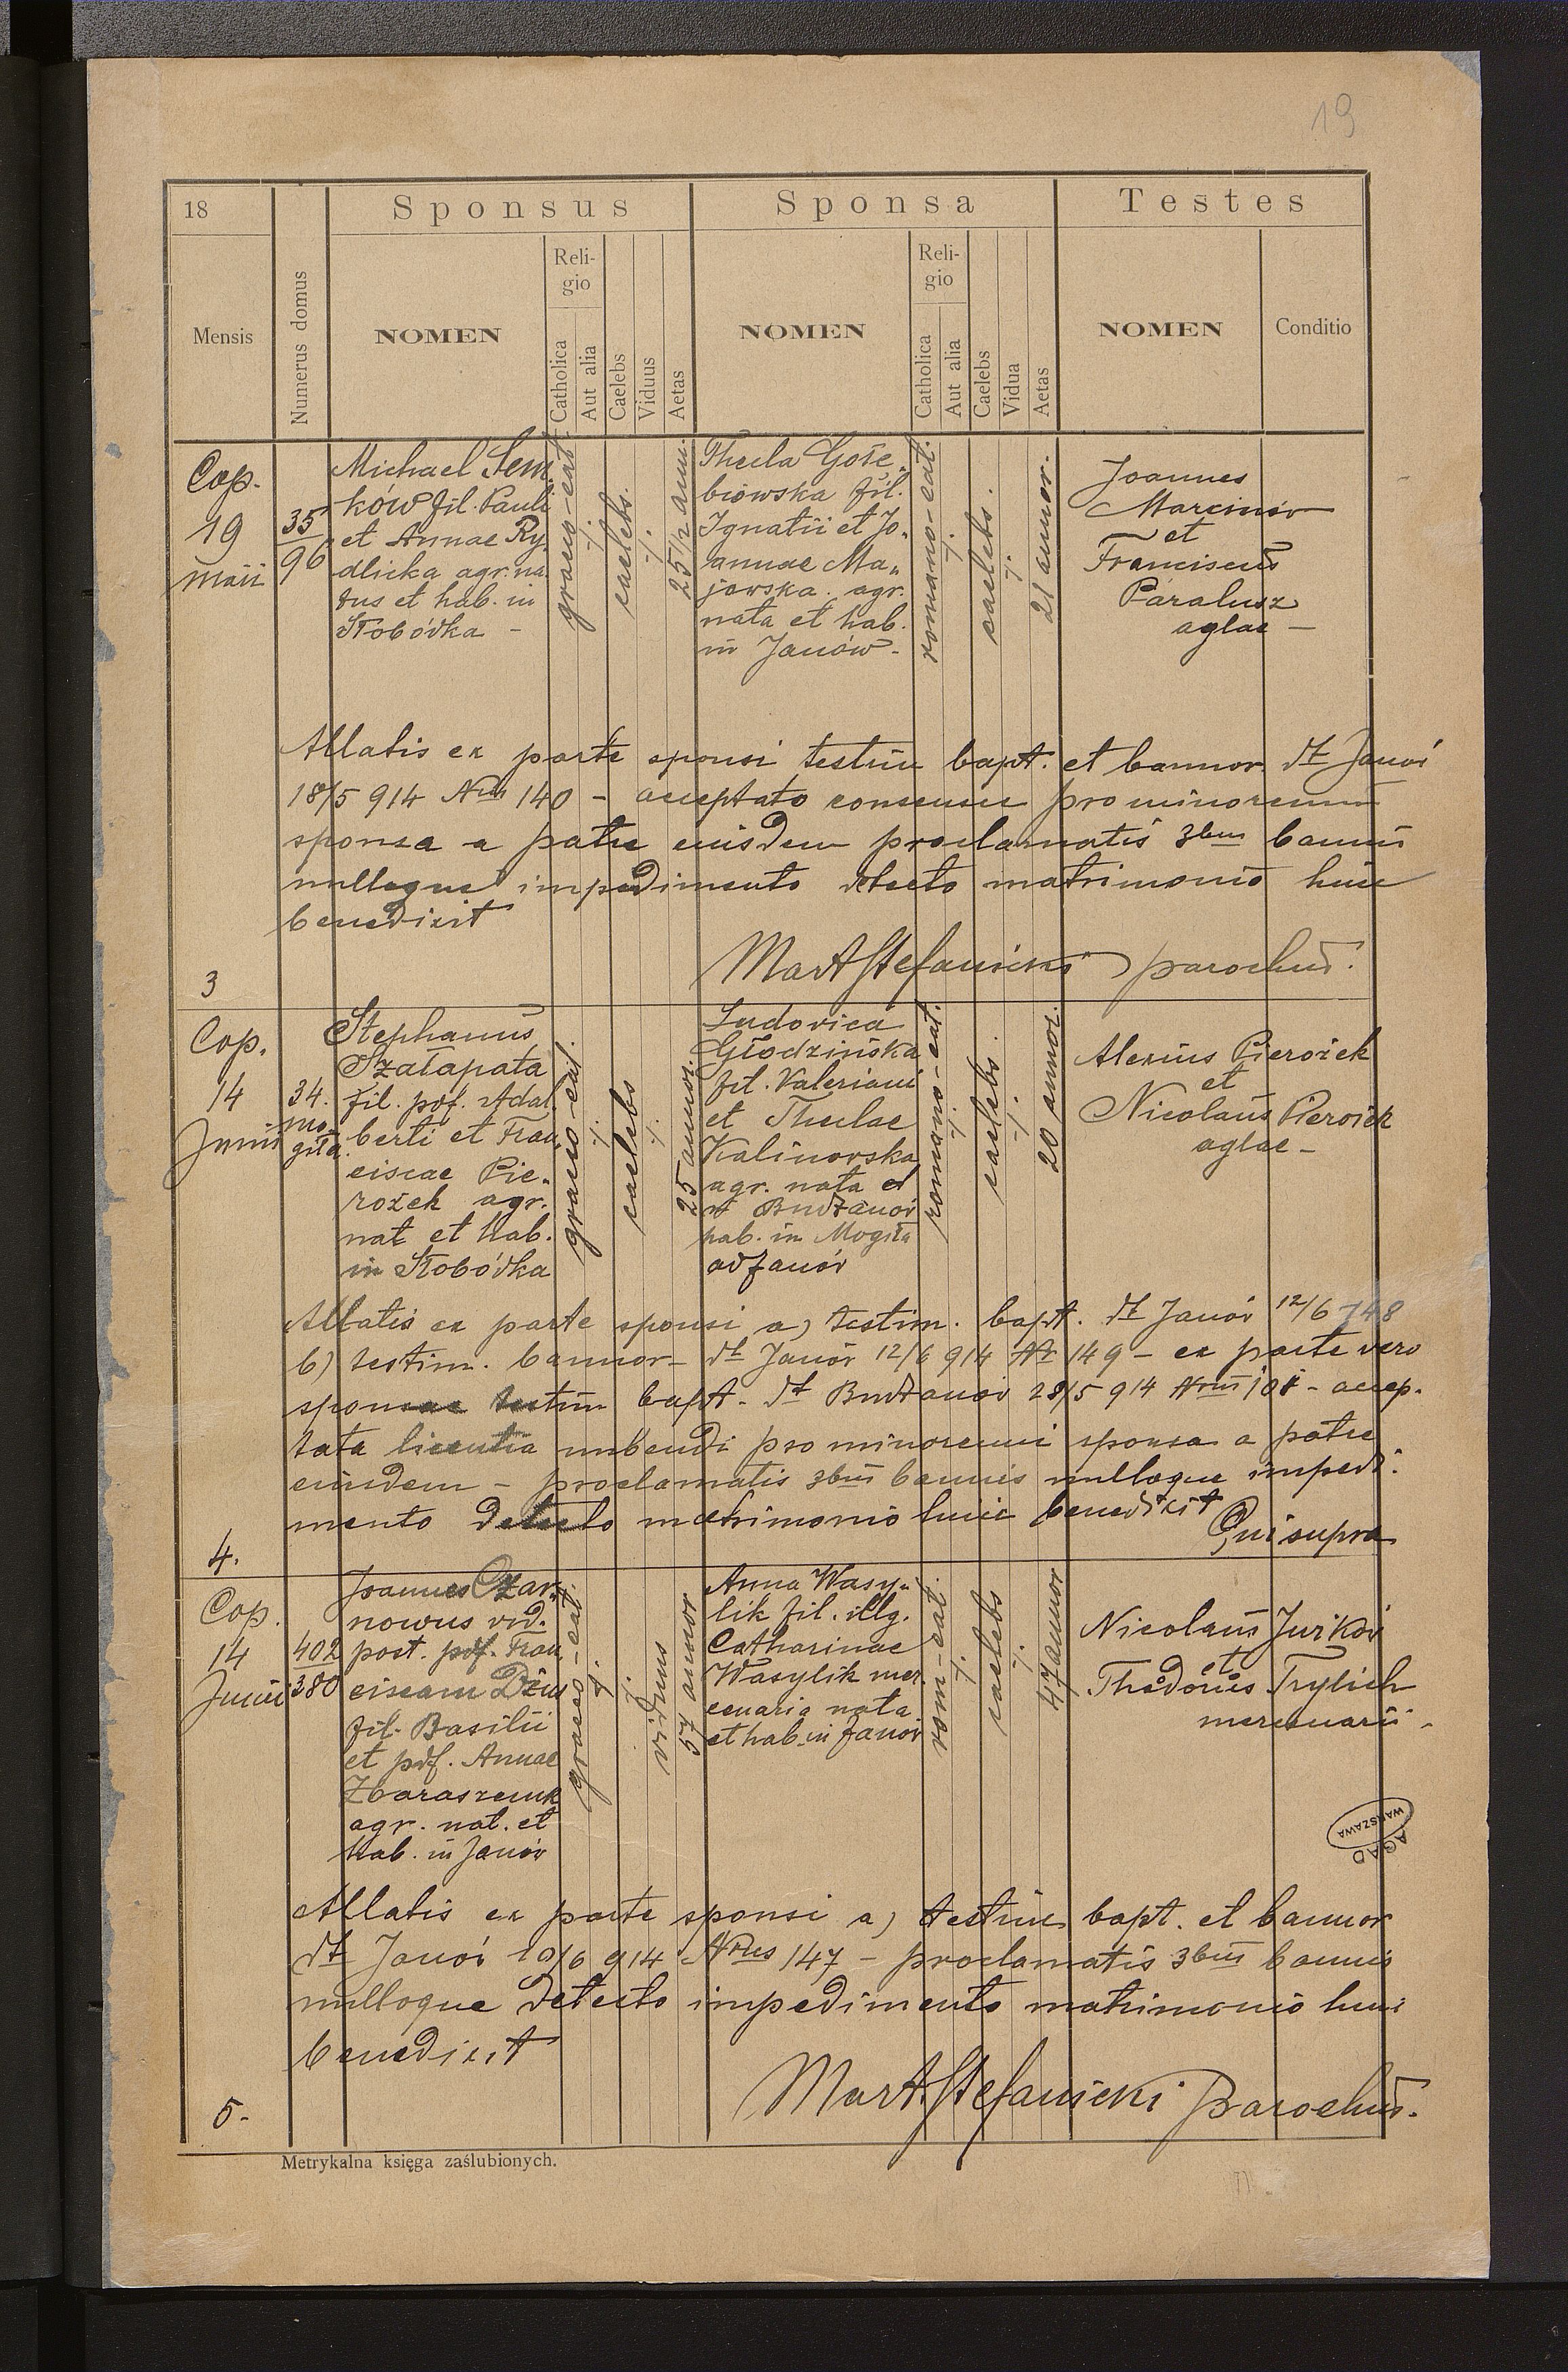 19
18
Sponsus
Sponsa
Testes
Mensis
Numerus domus
NOMEN
Religio
Catholica
Aut alia
Caelebs
Viduus
Aetas
NOMEN
Religio
Catholica
Aut alia
Caelebs
Vidua
Aetas
NOMEN
Conditio
Cop.
19
maii
35
96
Michael Sem
ków fil. Pauli
et Annae Ry
dlicka agr. na
tus et hab. in
Słobódka -
graeco-cat.
caelebs.
25 1/2 ann.
Thecla Gołę„
biowska fil.
Ignatii et Jo„
annae Ma„
jowska. agr.
nata et hab.
in Janów -
romano-cat.
caelebs.
21 annor.
Joannes
Marcinów
et
Franciscus
Paralusz
aglae -
Allatis ex parte sponsi testim bapt. et bannor. dt Janów
18/5 914 Nrus 140 - acceptato consensu pro minorenni
sponsa a patre eiusdem proclamatis 3bus bannis
nulloque impedimento detecto matrimonio huic
benedixit
MartStefanicki parochus.
3
Cop.
14
Junii
34.
mo
giła.
Stephanus
Szałapata
fil. pdf. Adal
berti et Fran
ciscae Pie„
rożek agr.
nat et hab.
in Słobódka
graeco-cat.
caelebs
25 annor.
Ludovica
Głodzińska
fil. Valeriani
et Theclae
Kalinowska
agr. nata
Budzanów
hab. in Mogiła
ad Janów
romano-cat.
caelebs.
20 annor.
Alexius Pierożek
et
Nicolaus Pierożek
aglae -
Allatis ex parte sponsi a) testim. bapt. dt Janów 12/6 748
b) testim. bannor- dt Janów 12/6 914 Nr 149 - ex parte vero
sponsae testim bapt. dt Budzanów 28/5 914 Nrus - accep.
tata licentia nubendi pro minorenni sponsa a patre
eiusdem - proclamatis 3bus bannis nulloque impedi.
mento detecto matrimonio huic benedixit
Qui supra
4.
Cop.
14
Junii
402
380
Joannes Czar„
nowus vid.
post. pdf. Fran
ciscam
fil. Basilii
et pdf. Annae
Zbaraszczuk
agr. nat. et
hab. in Janów
graeco-cat.
viduus
57 annor
Anna Wasy„
lik fil. illg.
Catharinae
Wasylik mer
cenaria nata
et hab. in Janów
rom-cat.
caelebs
47 annor
Nicolaus Jurków
et
Thedorus Trylich
mercenarii -
AGAD
WARSZAWA
Allatis ex parte sponsi a) testim bapt. et bannor
dt Janów 10/6 914 Nrus 147 - proclamatis 3bus bannis
nulloque detecto impedimento matrimonio huic
benedixit
MartStefanicki Parochus.
5.
Metrykalna księga zaślubionych.